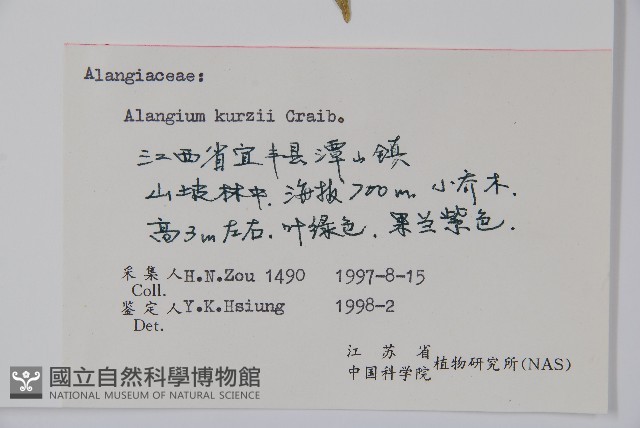 Alangiaceae:
Alangium kurzii Craib.
江西省宜丰县潭山镇
山坡林中. 海拔700m. 小乔木.
高3m左右. 叶绿色. 果呈紫色.
采集人H.N.Zou 1490 1997-8-15
Coll.
鉴定人Y.K.Hsiung 1998-2
Det.
江苏省
中国科学院植物研究所(NAS)
國立自然科學博物館
NATIONAL MUSEUM OF NATURAL SCIENCE